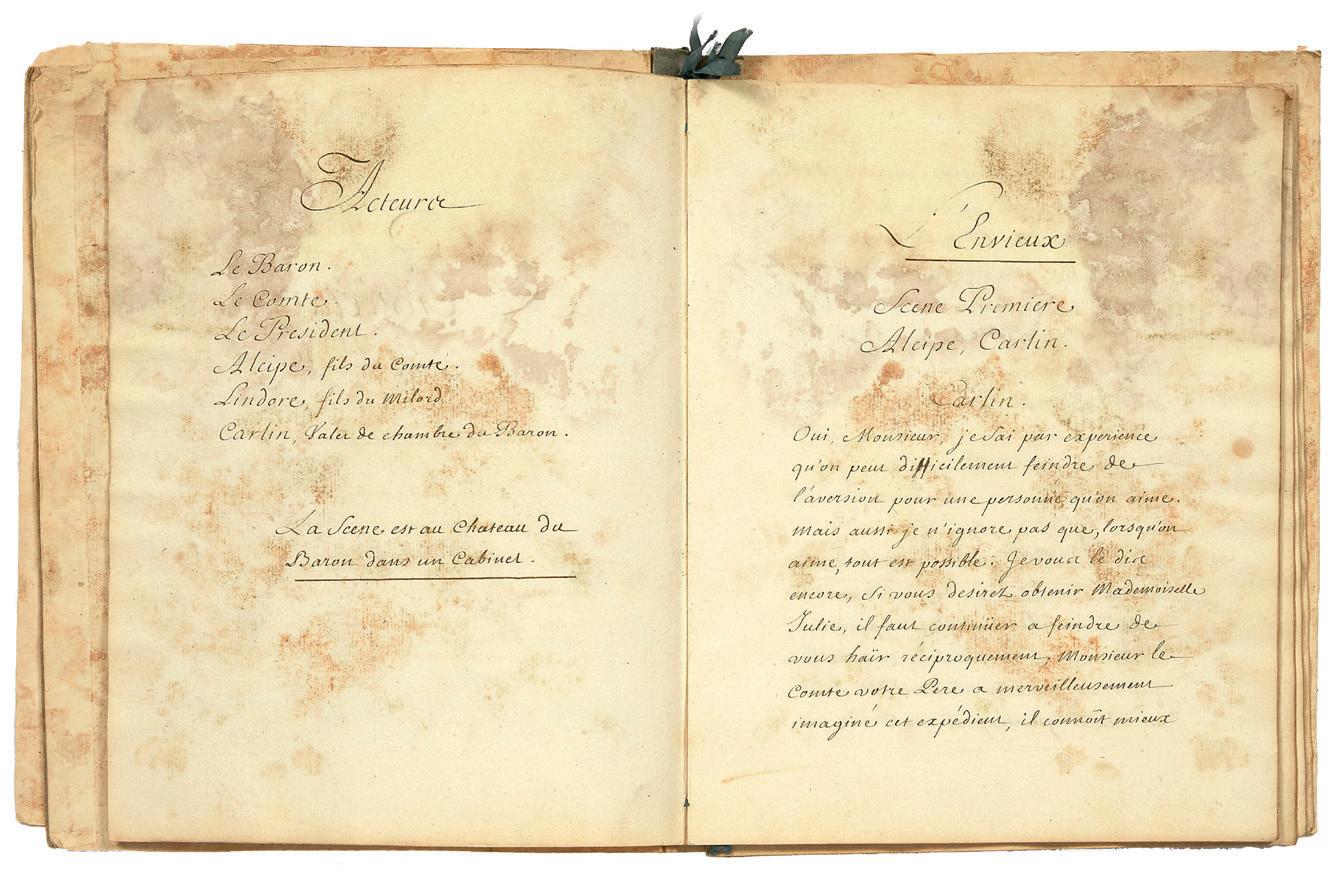 Acteurs
Le Baron.
Le Comte.
Le President.
Alcipe, fils du Comte.
Lindore, fils du Milord
Carlin, Valet de chambre du Baron.
La Scene est au Chateau du
Baron dans un Cabinet.
L'Envieux
Scene Premiere
Alcipe, Carlin.
Carlin.
Oui, Monsieur, je sai par experience
qu'on peut difficilement feindre de
l'aversion pour une personne qu'on aime.
mais aussi je n'ignore pas que, lorsqu'on
aime, tout est possible. Je vous le dis
encore, si vous desirez obtenir Mademoiselle
Julie, il faut continüer a feindre de
vous haïr réciproquement, Monsieur le
Comte votre Pere a merveilleusement
imaginé cet expédient, il connôit mieux